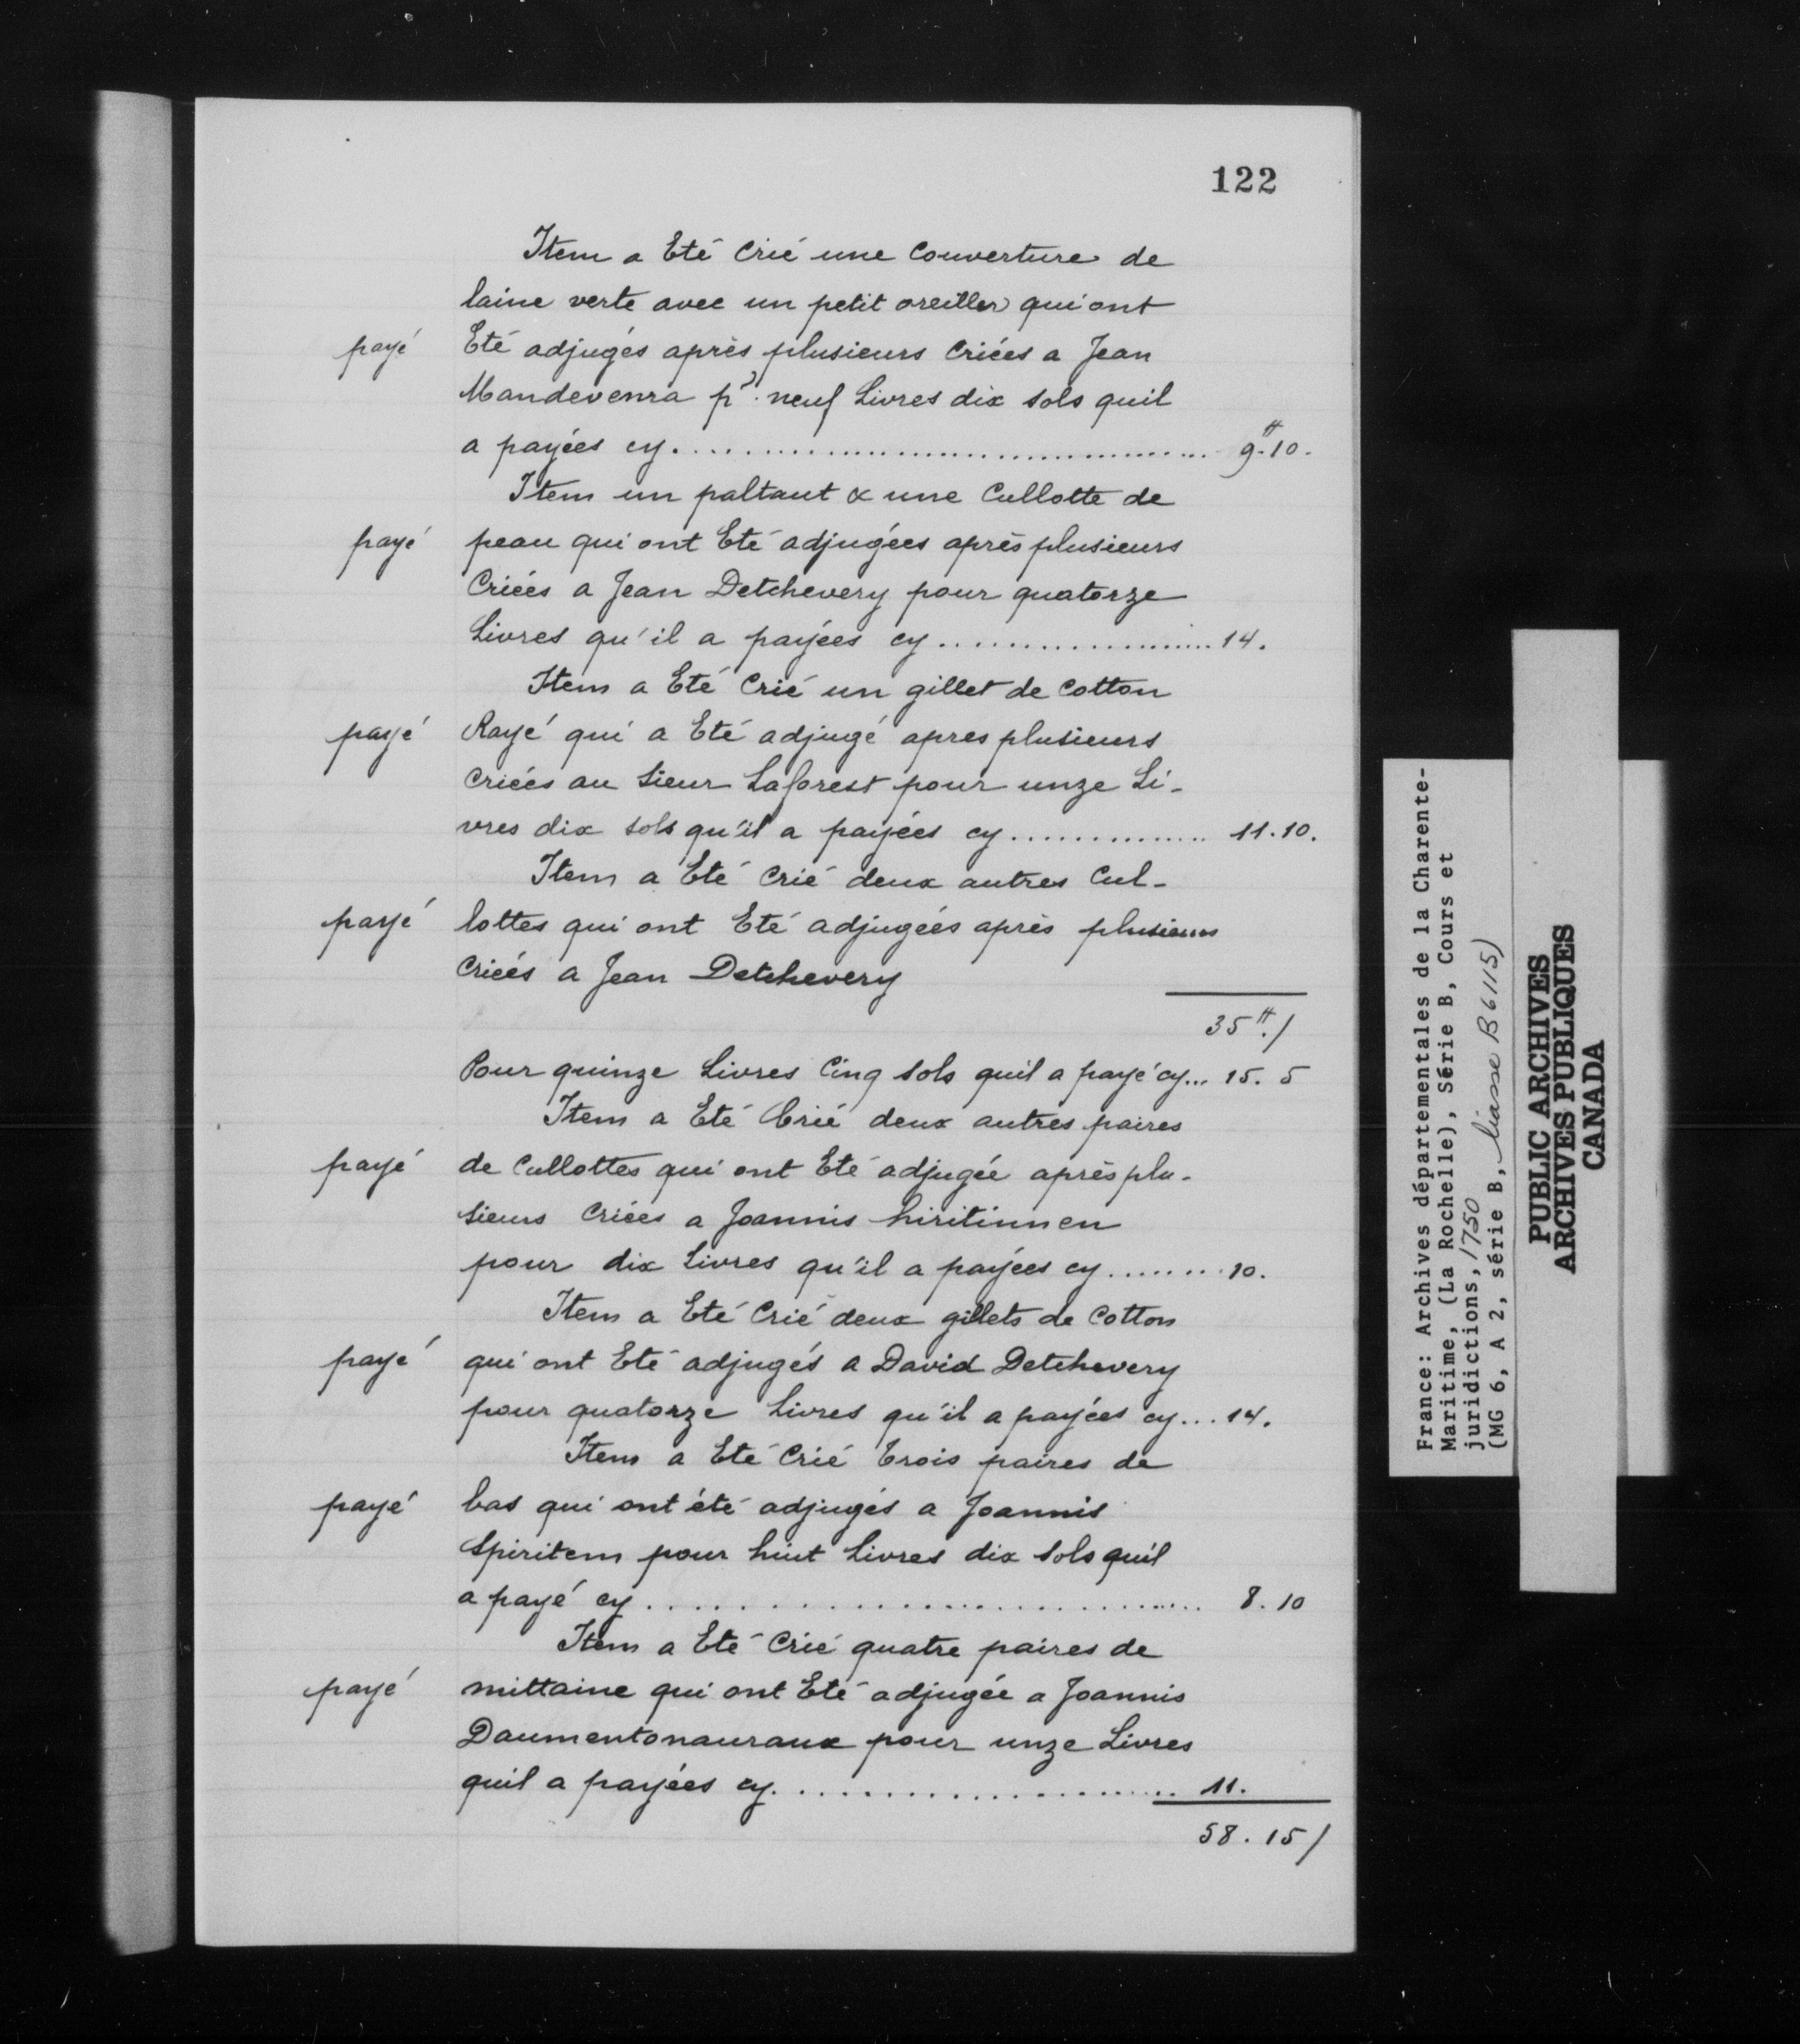 122
Item a Eté Crié une Couverture de
laine verte avec un petit oreiller qui ont
payé Eté adjugés après plusieurs Criées a Jean
Mandevenra pr. neuf Livres dix sols quil
a payées cy........................................ 9.# 10.
Item un paltaut & une Cullotte de
payé peau qui ont Eté adjugées après plusieurs
Criées a Jean Detchevery pour quatorze
Livres qu'il a payées cy..................... 14.
Item a Eté Crié un gillet de Cotton
payé Rayé qui a Eté adjugé apres plusieurs
criées au Sieur Laforest pour unze Li-
vres dix sols qu'il a payées cy............... 11.10.
Item a Eté Crié deux autres Cul-
payé lottes qui ont Eté adjugées après plusieurs
Criées a Jean Detchevery
35#./
Pour quinze Livres Cinq sols quil a payé cy... 15. 5
Item a Eté Crié deux autres paires
payé de Cullottes qui ont Eté adjugée après plu-
sieurs Criées a Joannis hiritinnen
pour dix Livres qu'il a payées cy........ 10.
Item a Eté Crié deux gillets de Cotton
payé qui ont Eté adjugés a David Detchevery
pour quatorze Livres qu'il a payées cy... 14.
Item a Eté Crié trois paires de
payé bas qui ont été adjugés a Joannis
Spiritem pour huit Livres dix sols quil
a payé cy.............................. 8.10
Item a Eté Crié quatre paires de
payé mittaine qui ont Eté adjugée a Joannis
Daumentonauraux pour unze Livres
quil a payées cy........................ 11.
58.15/
France: Archives départementales de la Charente-
Maritime, (La Rochelle), Série B, Cours et
juridictions, 1750
(MG 6, A 2, série B, liasse B 6115)
PUBLIC ARCHIVES
ARCHIVES PUBLIQUES
CANADA